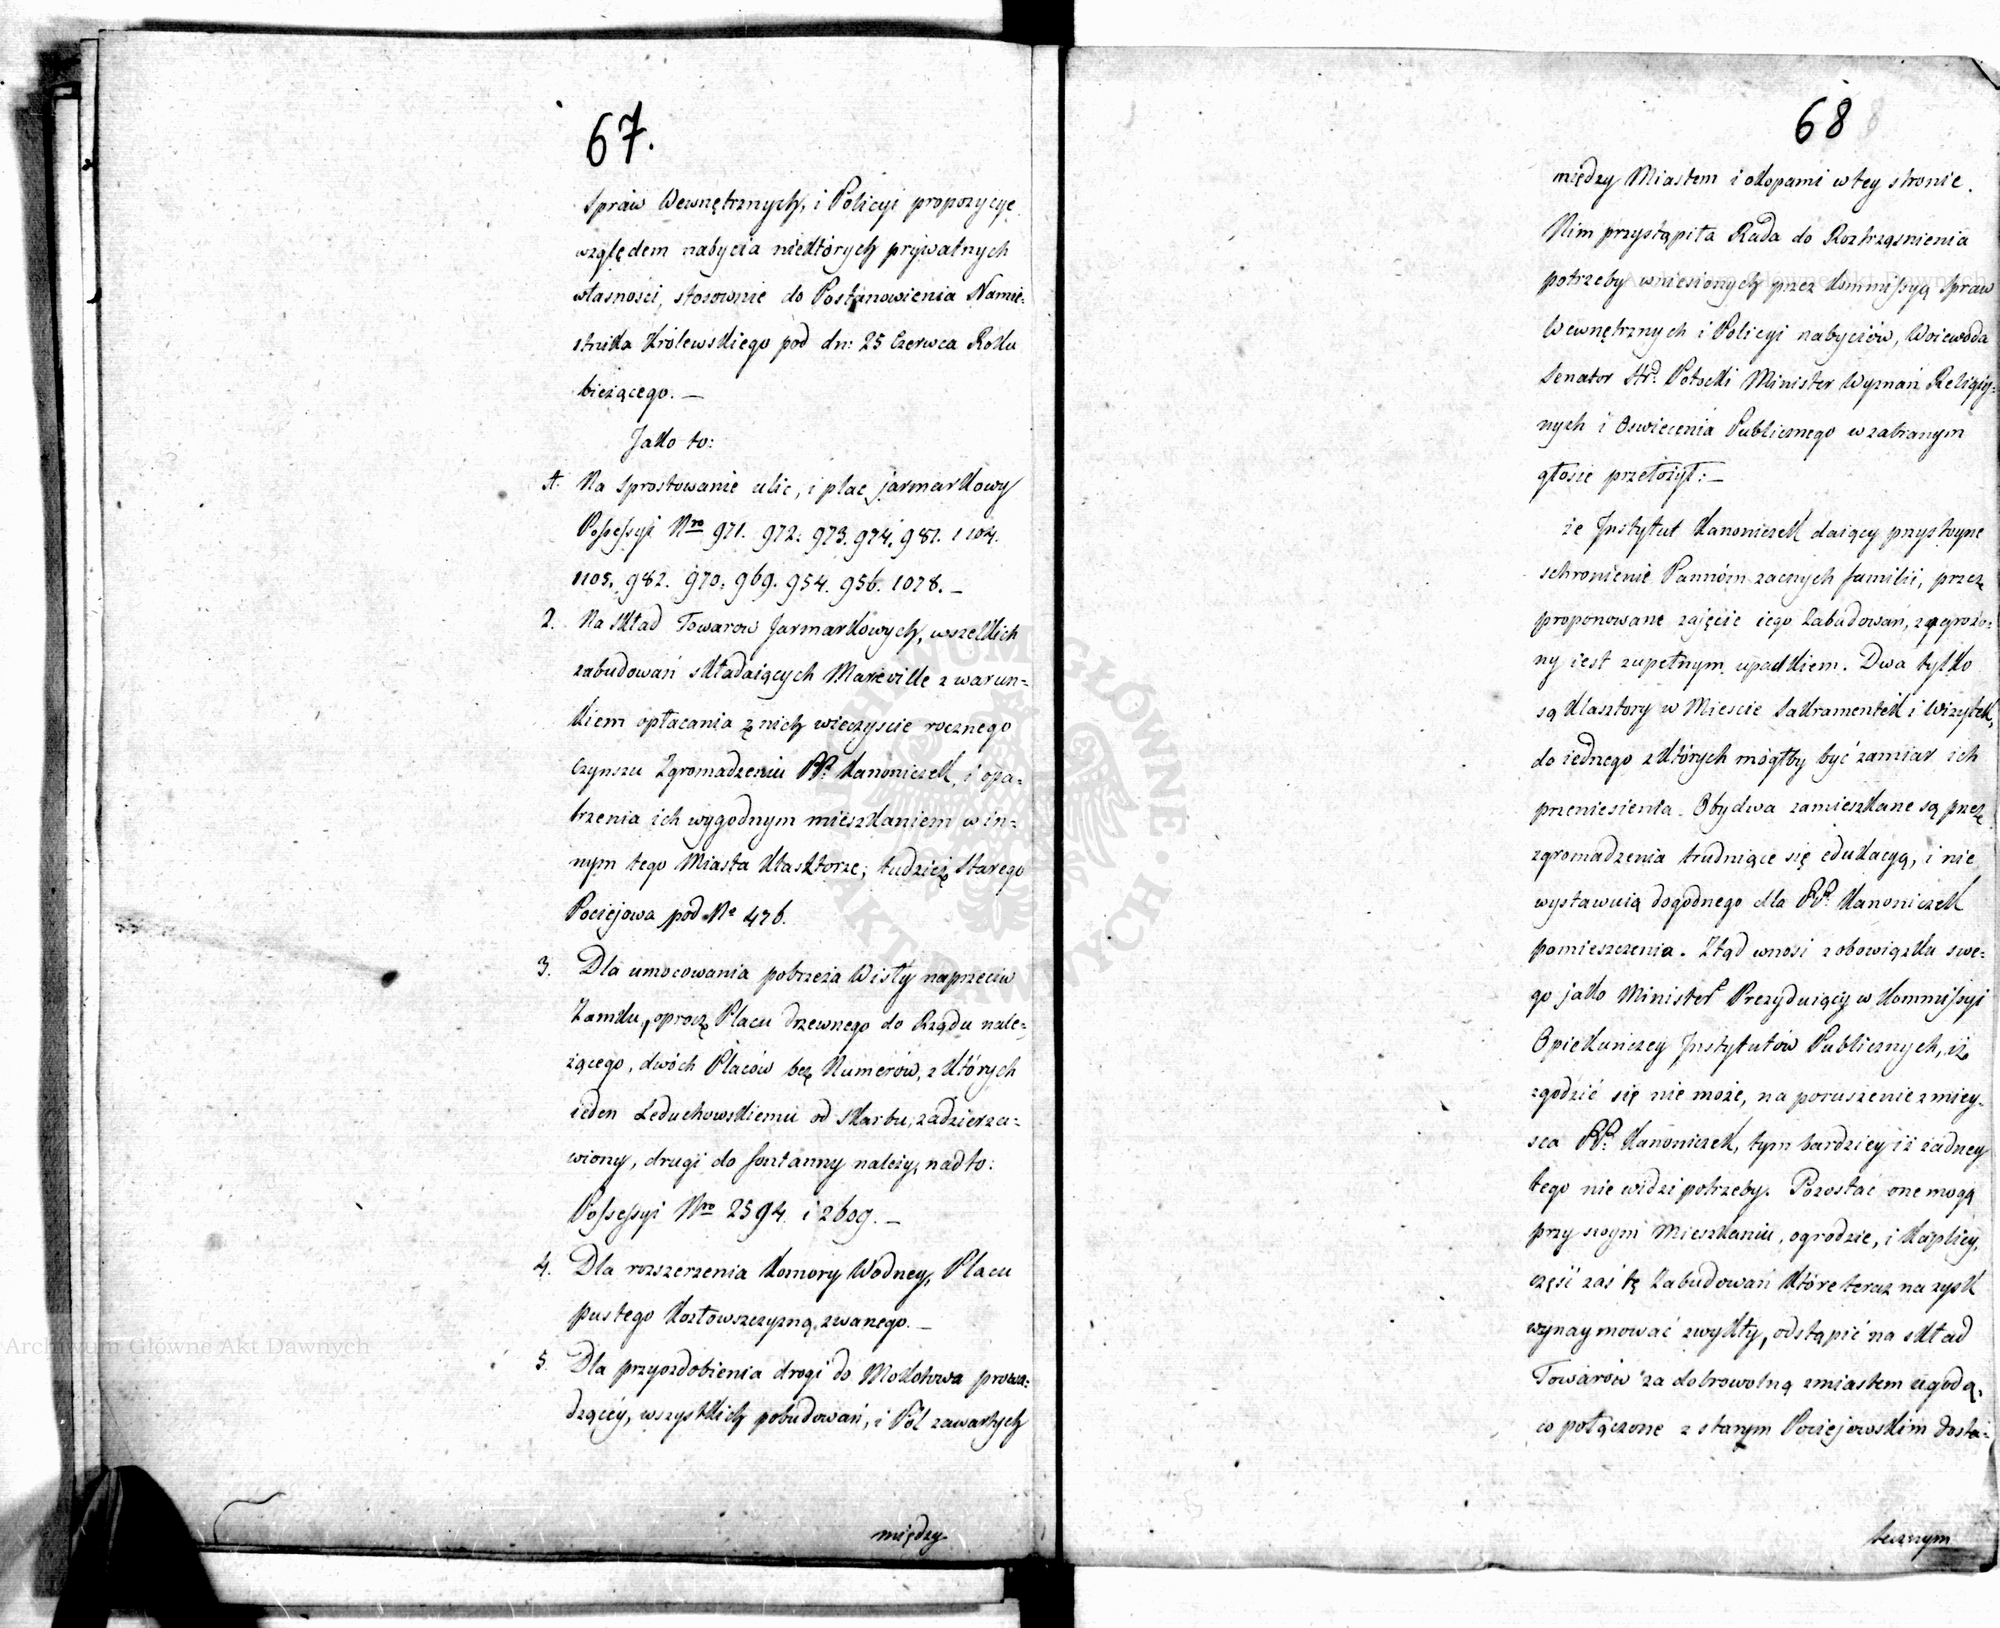 67.
Spraw Wewnętrznych, i Policyi propozycyę
względem nabycia niektórych prywatnych
własności, stosownie do Postanowienia Namie-
stnika Królewskiego pod dn: 25 Czerwca Roku
bieżącego. —
Jako to:
1. Na sprostowanie ulic, i plac jarmarkowy
Possessyi Nro 971. 972. 973. 974. 981. 1104.
1105. 982. 970. 969. 954. 956. 1078. —
2. Na skład Towarow Jarmarkowych, wszelkich
zabudowań składaiących Marieville z warun-
kiem opłacania z nich wieczyście rocznego
Czynszu Zgromadzeniu PP. Kanoniczek, i opa-
trzenia ich wygodnym mieszkaniem w in-
nym tego Miasta Klasztorze; tudzież Starego
Pociejowa pod No 476.
3. Dla umocowania pobrzeża Wisły naprzeciw
Zamku, oprocz Placu drzewnego do Rządu nale-
żącego, dwóch Placów bez Numerów, z których
ieden Leduchowskiemu od Skarbu, zadzierża-
wiony, drugi do fontanny należy, nadto:
Possessyi Nro 2594. i 2609. —
4. Dla rozszerzenia Komory Wodney, Placu
pustego Kozłowszczyzną zwanego. —
5. Dla przyozdobienia drogi do Mokotowa prowa-
dzącey, wszystkich pobudowań, i Pól zawartych
między
68
między Miastem i okopami w tey stronie.
Nim przystąpiła Rada do Roztrząśnienia
potrzeby wniesionych przez Kommissyą Spraw
Wewnętrznych i Policyi nabyciów, Woiewoda
Senator Str. Potocki Minister Wyznań Religiy-
nych i Oswiecenia Publicznego w zabranym
głosie przełożył: —
że Instytut Kanoniczek daiący przystoyne
schronienie Pannóm zacnych familii, przez
proponowane zajęcie iego Zabudowań, zagrożo-
ny iest zupełnym upadkiem. Dwa tylko
są Klasztory w Mieście Sakramentek i Wizytek,
do iednego z których mógłby być zamiar ich
przeniesienia. Obydwa zamieszkane są przez
zgromadzenia trudniące się edukacyą, i nie
wystawuią dogodnego dla PP. Kanoniczek
pomieszczenia. Ztąd wnosi z obowiązku swe-
go jako Minister Prezyduiący w Kommissyi
Opiekunczey Instytutów Publicznych, iż
zgodzić się nie może, na poruszenie z miey-
sca PP. Kanoniczek, tym bardziey iż żadney
tego nie widzi potrzeby. Pozostać one mogą
przy swym Mieszkaniu, ogrodzie, i Kaplicy,
część zaś tę Zabudowań które teraz na zysk
wynaymować zwykły, odstąpić na skład
Towarów za dobrowolną z miastem ugodą,
co połączone z starym Pociejowskim dosta-
tecznym
Archiwum Główne Akt Dawnych
Archiwum Główne Akt Dawnych
ARCHIWUM GŁÓWNE AKT DAWNYCH